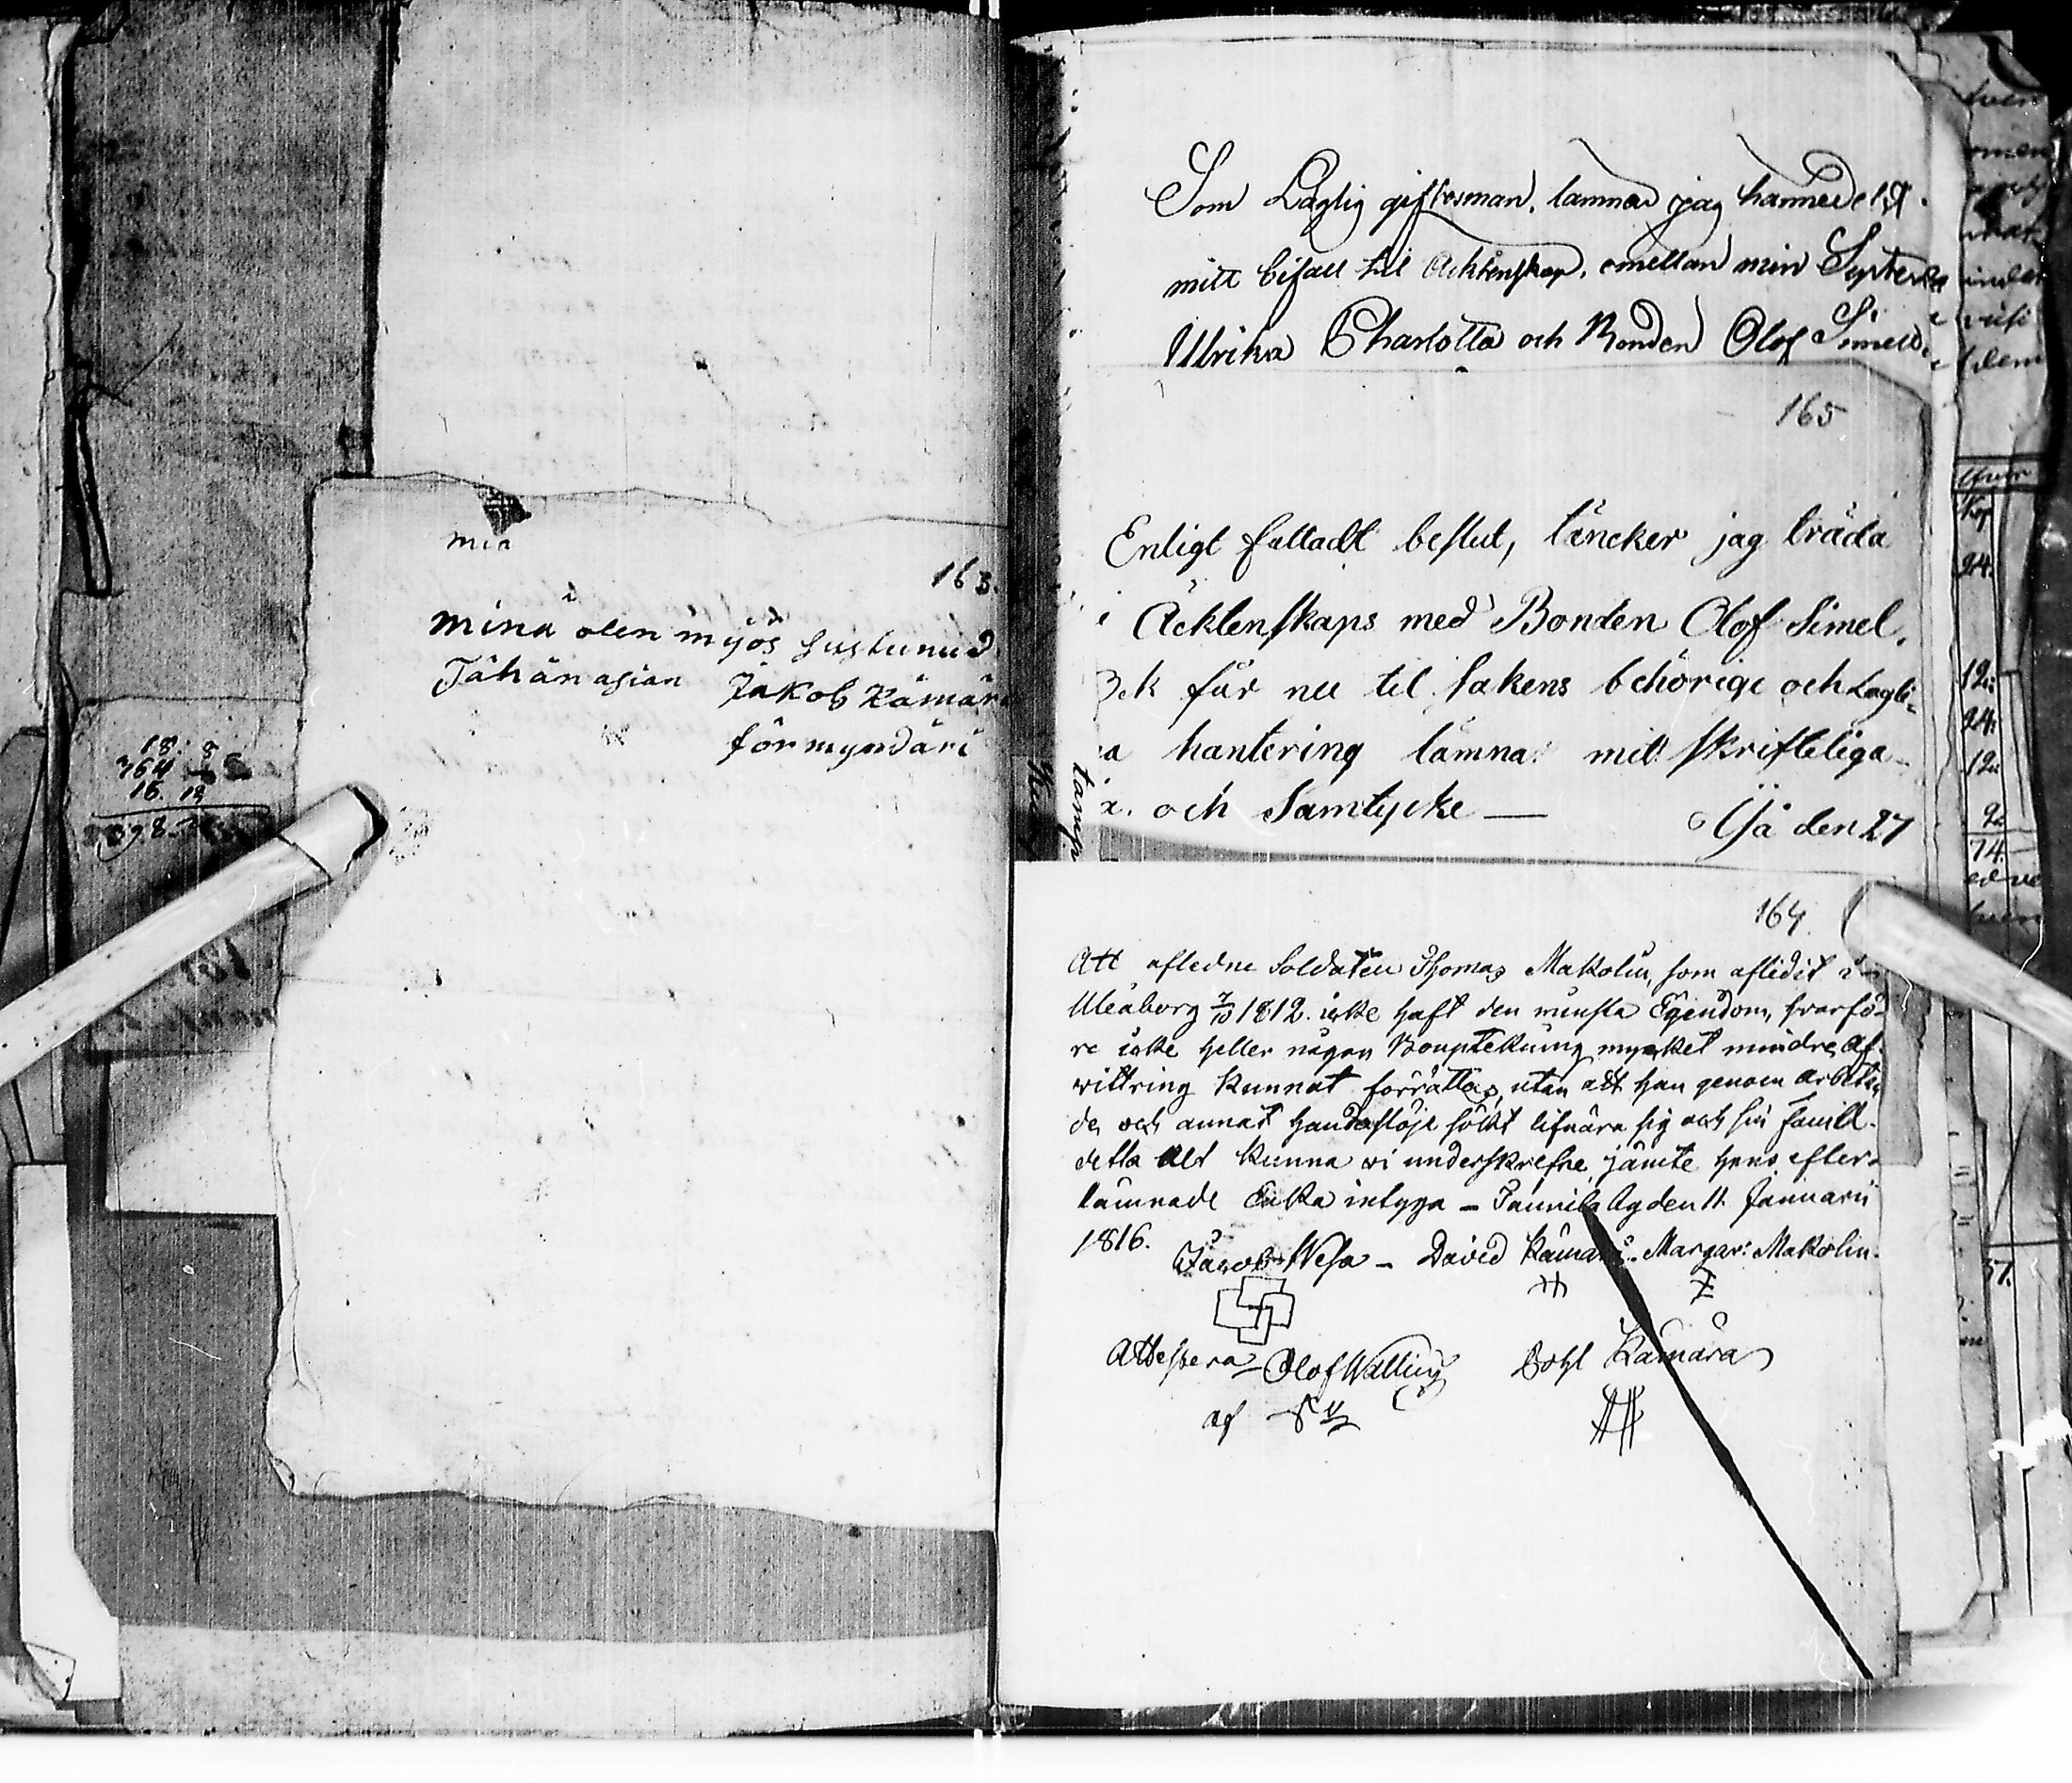 18. 8
764
16. 12
mia
163.
minä olen myös sustunud
Tähän asian Jakob Kämärä
förmyndäri
Som Laglig giftosman, lamnar jag harmedelst
mitt bifall till Äcktenskap, emellan min Syster
Ulrika Charlotta och Bonden Olof Simel
165
Enligt fattadt beslut, täncker jag träda
i Äcktenskaps med Bonden Olof Simel,
Bek får nu til sakens behörige och Lagli-
a hantering lämna mitt skrifteliga
a. och Samtycke — Yjå den 27
164.
Att afledne Soldaten Thomas Makolin, som aflidit i
Uleåborg 7/10 1812. icke haft den minsta Egendom, hvarfö-
re icke heller någon Bouptekning mycket mindre Af-
wittring kunnat förrättas, utan att han genom arbetan-
de och annat handaslöje sökt lifnära sig och sin famill.
detta alt kunna wi underskrefne jämte hans efter-
lämnade Enka intyga – den 11. Januarii
1816.
Jacob Wesa – David Kämärä. Margar: Makolin.
Attestera – Olof Walling Bohl Kämärä
af
24.
12:
24:
12:
74.
57.